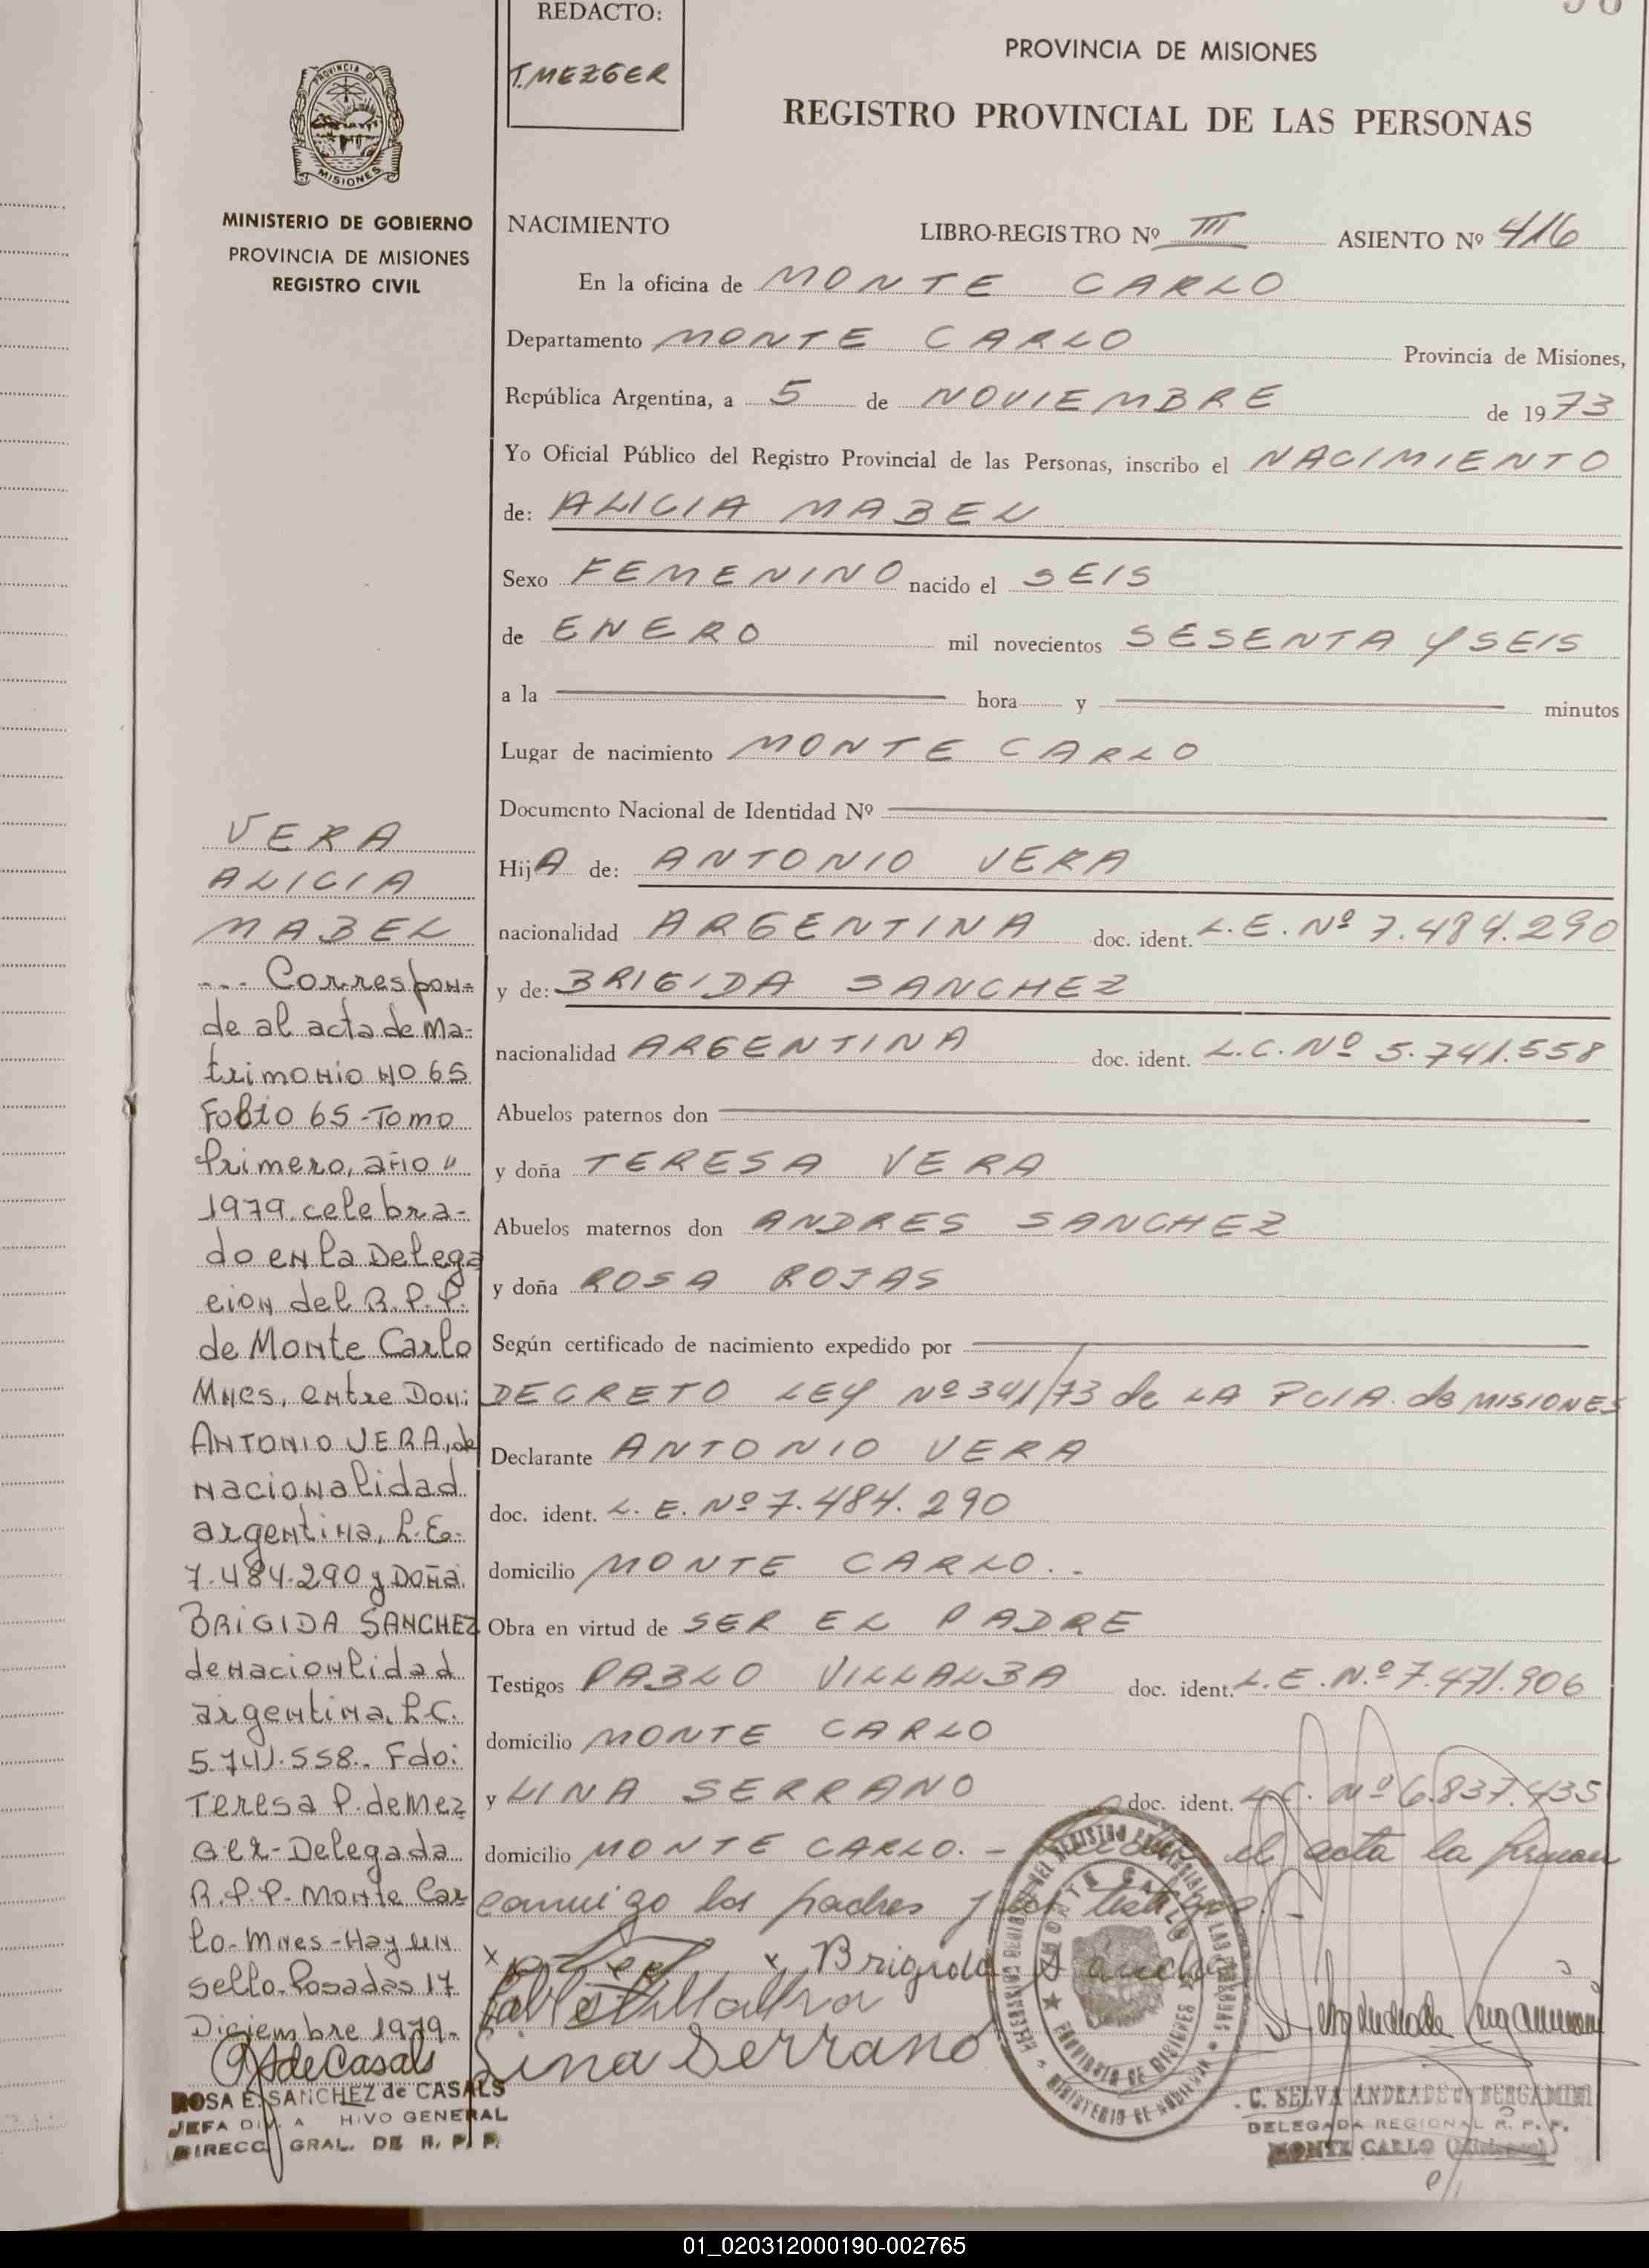 REDACTO:
T. MEZGER
PROVINCIA DE MISIONES
REGISTRO PROVINCIAL DE LAS PERSONAS
PROVINCIA DE
MISIONES
MINISTERIO DE GOBIERNO
PROVINCIA DE MISIONES
REGISTRO CIVIL
NACIMIENTO LIBRO-REGISTRO Nº III ASIENTO Nº 416
En la oficina de MONTE CARLO
Departamento MONTE CARLO Provincia de Misiones,
República Argentina, a 5 de NOVIEMBRE de 1973
Yo Oficial Público del Registro Provincial de las Personas, inscribo el NACIMIENTO
de: ALICIA MABEL
Sexo FEMENINO nacido el SEIS
de ENERO mil novecientos SESENTA Y SEIS
a la hora y minutos
Lugar de nacimiento MONTE CARLO
Documento Nacional de Identidad Nº
HijA de: ANTONIO VERA
nacionalidad ARGENTINA doc. ident. L.E. Nº 7.484.290
y de: BRIGIDA SANCHEZ
nacionalidad ARGENTINA doc. ident. L.C. Nº 5.741.558
Abuelos paternos don
y doña TERESA VERA
Abuelos maternos don ANDRES SANCHEZ
y doña ROSA ROJAS
Según certificado de nacimiento expedido por
DECRETO LEY Nº 341/73 de LA PCIA. de MISIONES
Declarante ANTONIO VERA
doc. ident. L.E. Nº 7.484.290
domicilio MONTE CARLO.-
Obra en virtud de SER EL PADRE
Testigos PABLO VILLALBA doc. ident. L.E. Nº 7.471.906
domicilio MONTE CARLO
y LINA SERRANO doc. ident. L.C. Nº 6.837.435
domicilio MONTE CARLO.- el acta la firman
conmigo los padres y los testigos.-
x x Brigida Sanchez
Pablo Villalba
Lina Serrano
VERA
ALICIA
MABEL
--- Correspon=
de al acta de ma-
trimonio Nº 65
Folio 65-Tomo
Primero, año "
1979. celebra-
do en la Delega
cion del R.P.P.
de Monte Carlo
Mnes, entre Don:
ANTONIO VERA, de
nacionalidad
argentina, L.E.
7.484.290 y Doña
BRIGIDA SANCHEZ
de nacionlidad
argentina, L.C.
5.741.558.. Fdo:
Teresa P. de Mez
ger-Delegada
R.P.P. Monte Car
lo-Mnes-Hay un
sello. Posadas 17
Diciembre 1979-
RSdeCasals
ROSA E. SANCHEZ de CASALS
JEFA DIV. A HIVO GENERAL
DIRECC GRAL. DE R. P. P.
MONTE CARLO
PROVINCIA DE MISIONES
C. SELVA ANDRADE de BERGAMINI
DELEGADA REGIONAL R. P. P.
MONTE CARLO (Misiones)
01_020312000190-002765